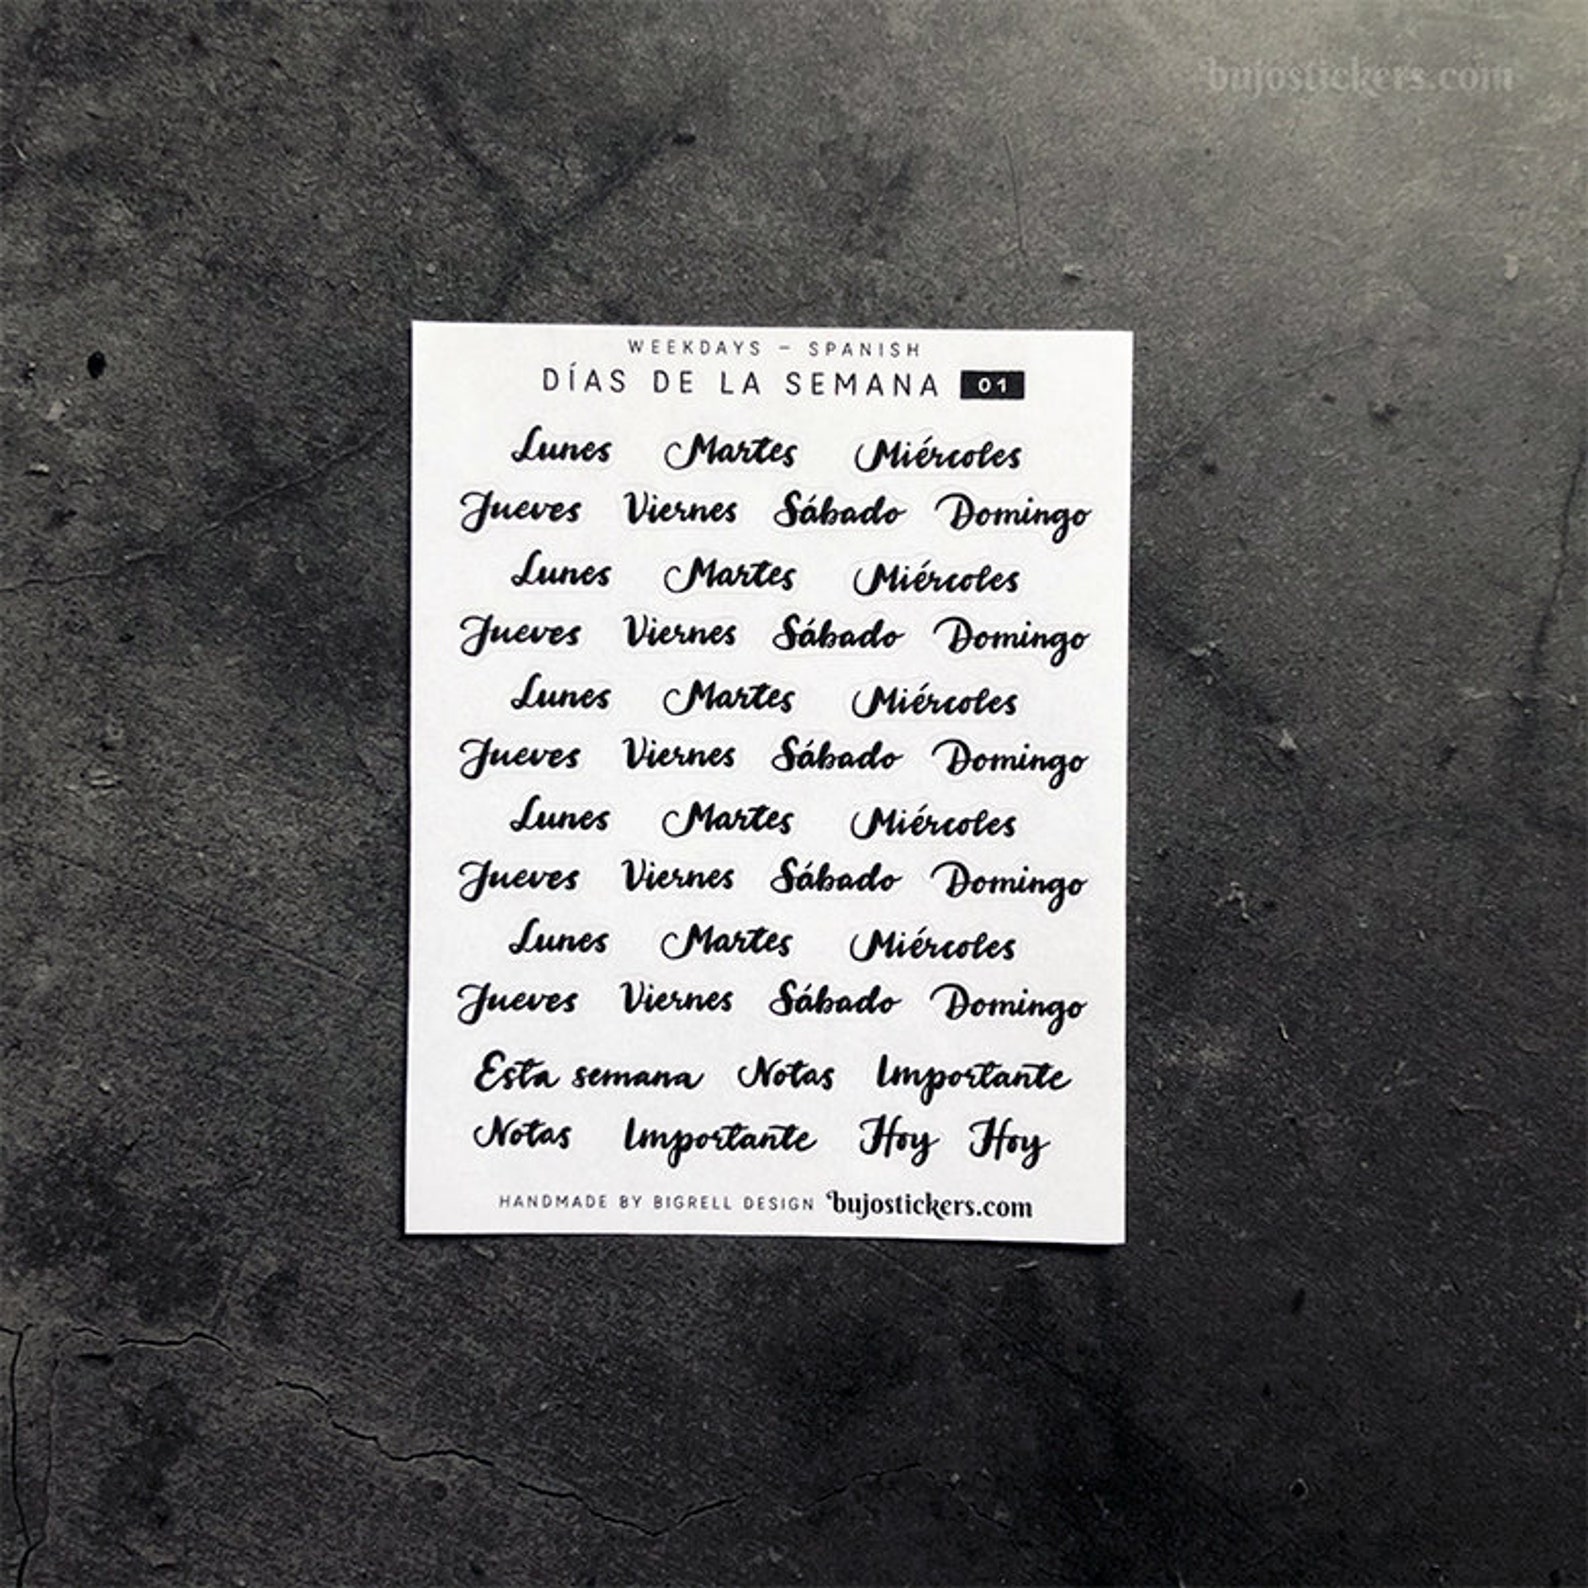 bujostickers.com
WEEKDAYS – SPANISH
DÍAS DE LA SEMANA 01
Lunes Martes Miércoles
Jueves Viernes Sábado Domingo
Lunes Martes Miércoles
Jueves Viernes Sábado Domingo
Lunes Martes Miércoles
Jueves Viernes Sábado Domingo
Lunes Martes Miércoles
Jueves Viernes Sábado Domingo
Lunes Martes Miércoles
Jueves Viernes Sábado Domingo
Esta semana Notas Importante
Notas Importante Hoy Hoy
HANDMADE BY BIGRELL DESIGN bujostickers.com